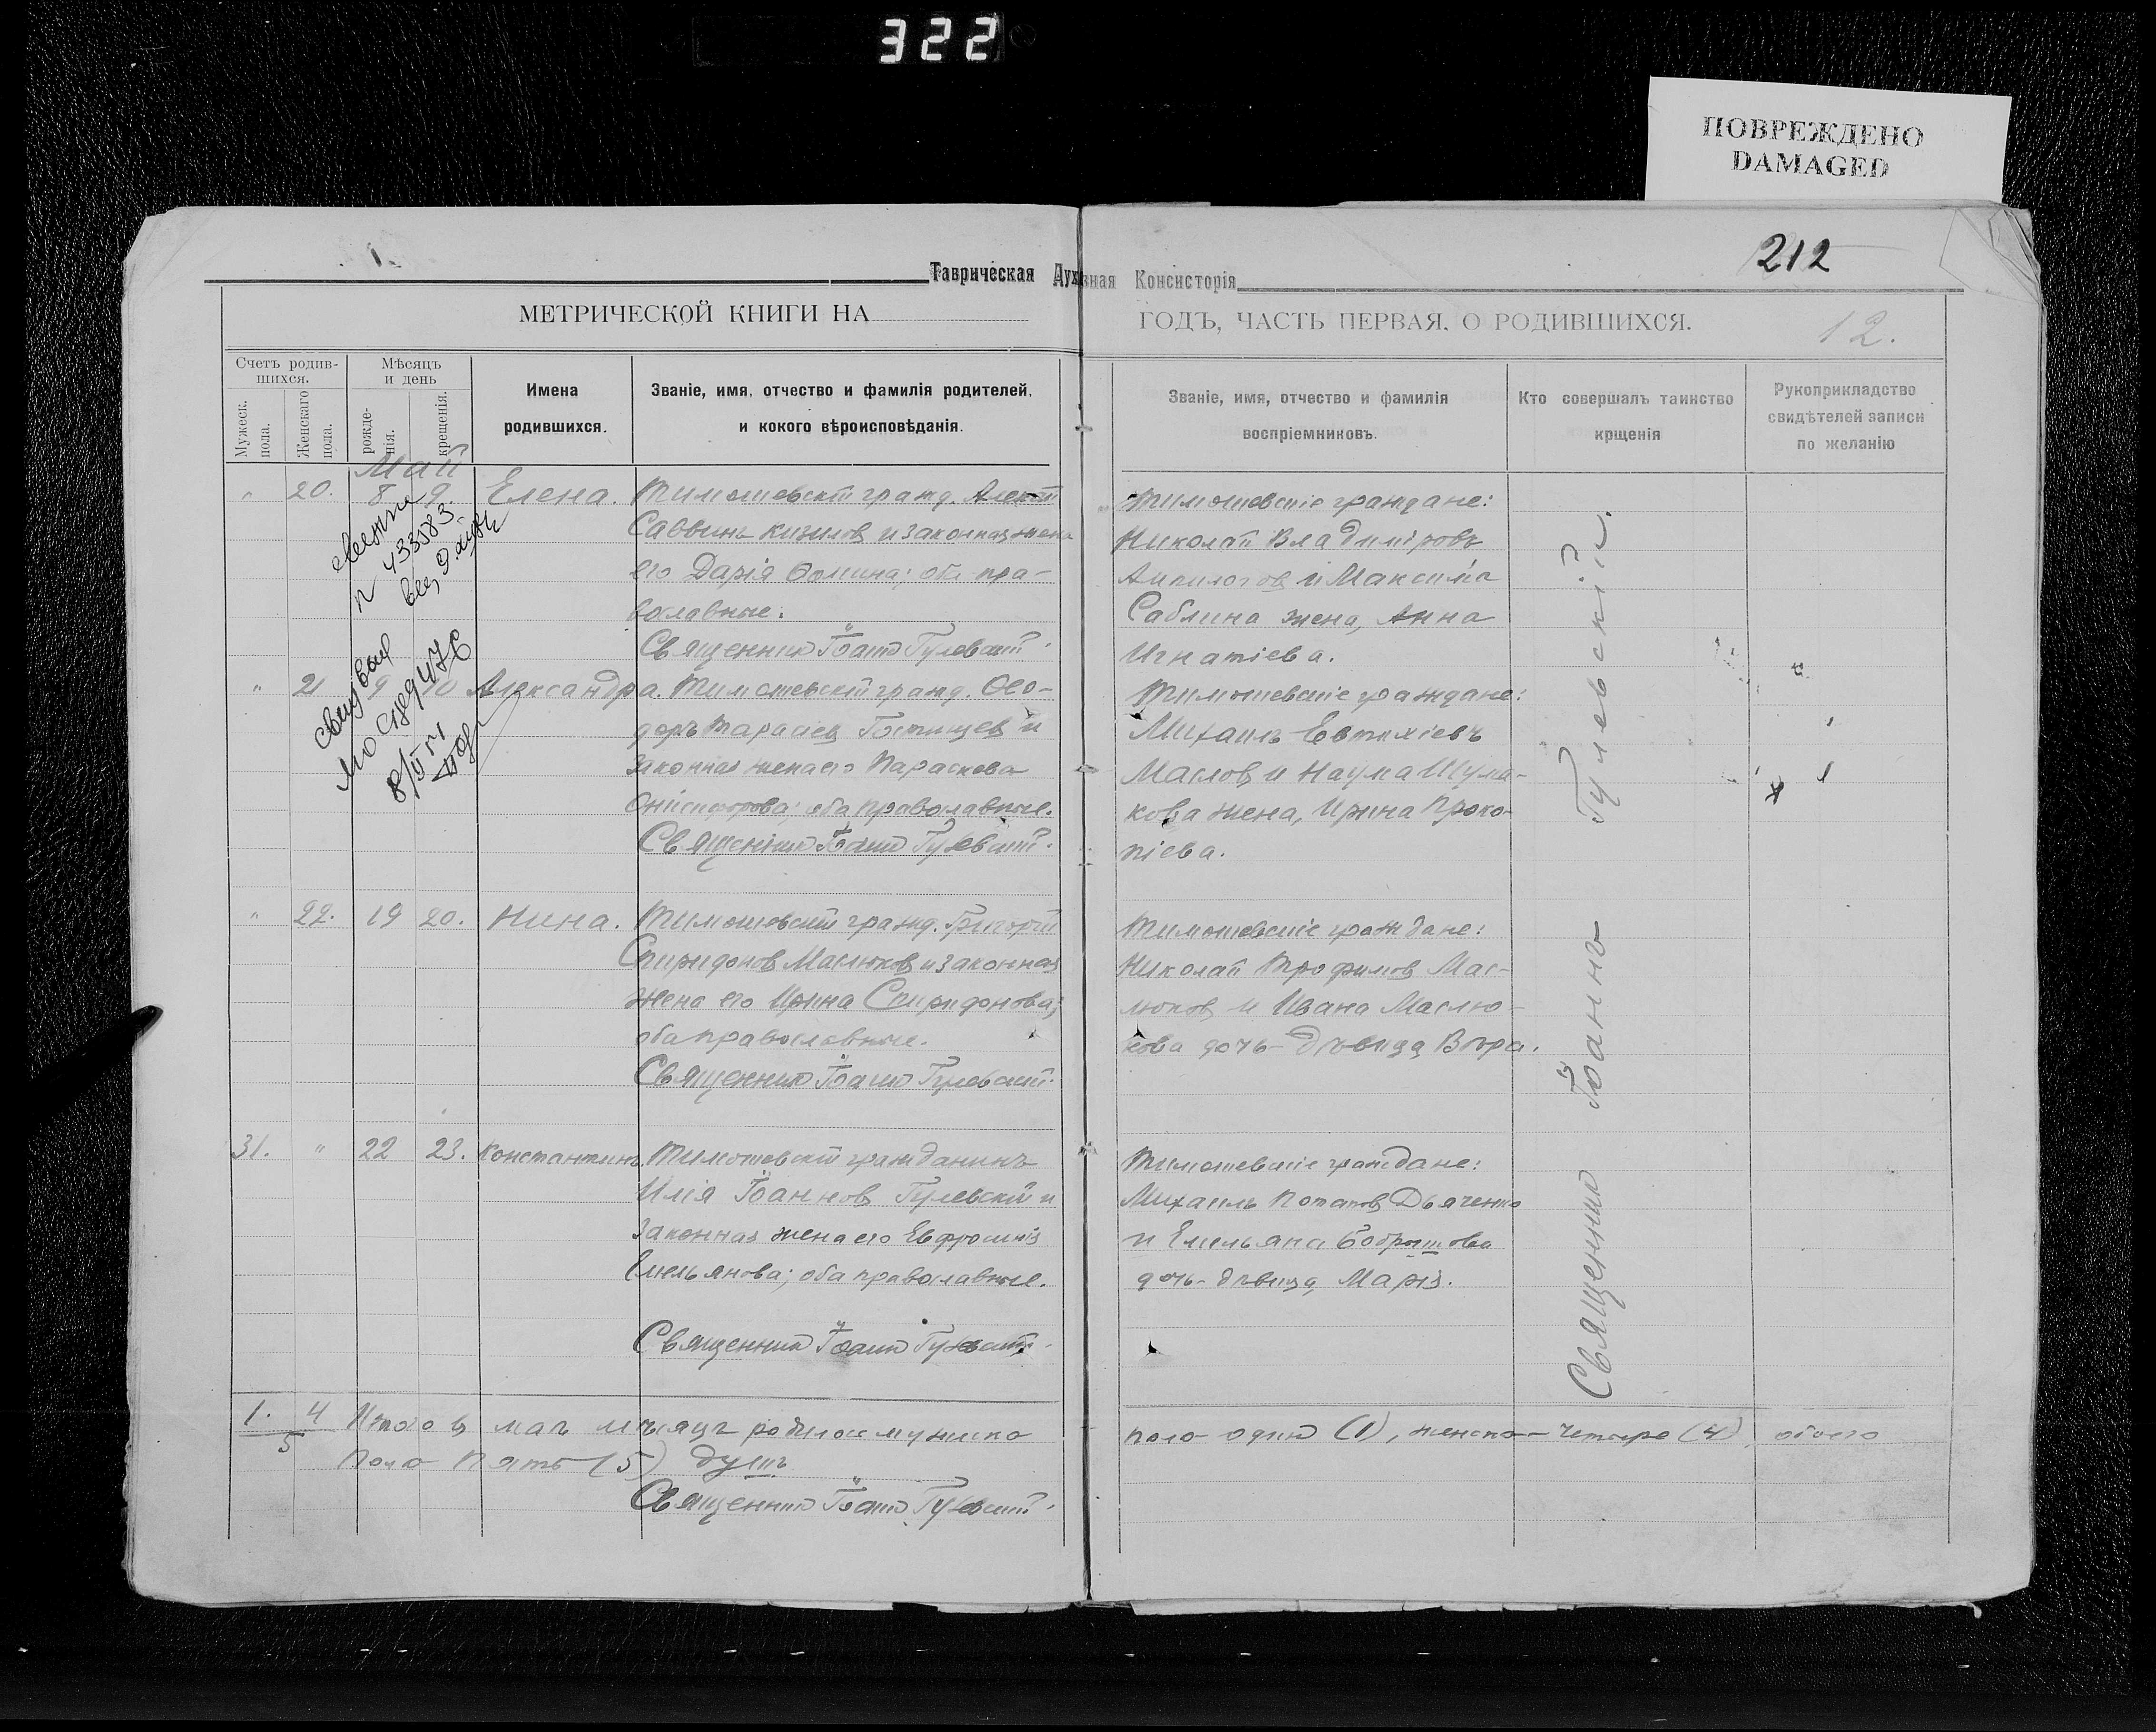 322
ПОВРЕЖДЕНО
DAMAGED
1.
212
Таврическая Духовная Консисторія
МЕТРИЧЕСКОЙ КНИГИ НА
ГОДЪ, ЧАСТЬ ПЕРВАЯ, О РОДИВШИХСЯ.
12.
Счетъ родив-
шихся.
Мужеск.
пола.
Женскаго
пола.
Мѣсяцъ
и день
рожде-
нія.
крещенія.
Имена
родившихся.
Званіе, имя, отчество и фамилія родителей,
и кокого вѣроисповѣданія.
Званіе, имя, отчество и фамилія
воспріемниковъ.
Кто совершалъ таинство
крщенія
Рукоприкладство
свидѣтелей записи
по желанію
Май
" 20. 8 9. Елена. Тимошевскій гражд. Алексѣй
Саввинъ Кизилов и законная жена
его Дарія Ѳомина; оба пра-
вославные.
Священник Іоанн Гулевскій.
Тимошевскіе граждане:
Николай Владиміровъ
Анпилогов и Максима
Саблина жена, Анна
Игнатіева.
п 433583
" 21 9 10 Александра. Тимошевскій гражд. Ѳео-
доръ Тарасіев Гостищев и
законная жена его Параскева
Онисифорова; оба православные.
Священник Іоанн Гулевскій.
Тимошевскіе граждане:
Михаилъ Евтихіевъ
Маслов и Наума Шума-
кова жена, Ирина Проко-
піева.
" 22. 19 20. Нина. Тимошевскій гражд. Григорій
Спиридонов Маслюков и законная
жена его Ирина Спиридонова;
оба православные.
Священник Іоанн Гулевскій.
Тимошевскіе граждане:
Николай Трофимов Мас-
люков и Ивана Маслю-
кова дочь-дѣвица Вѣра.
31. " 22 23. Константинъ. Тимошевскій гражданинъ
Илія Іоаннов Гулевскій и
законная жена его Евфросинія
Емельянова; оба православные.
Священник Іоанн Гулевскій.
Тимошевскіе граждане:
Михаилъ Потапов Дьяченко
и Емельяна Бобрышова
дочь-дѣвица, Марія.
Священник Іоаннъ Гулевскій.
1. 4 Итого в маѣ мѣсяцѣ родилось мужско
5 поло пять (5) душъ
поло один (1), женско-четыре (4), обоего
Священник Іоанн Гулевскій.